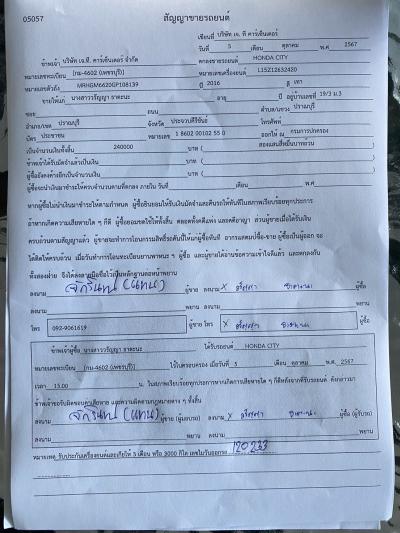 05057
สัญญาขายรถยนต์
เขียนที่ บริษัท เจ. ที คาร์เซ็นเตอร์
วันที่ 5 เดือน ตุลาคม พ.ศ 2567
ข้าพเจ้า บริษัท เจ.ที. คาร์เซ็นเตอร์ จำกัด ตกลงขายรถยนต์ HONDA CITY
หมายเลขทะเบียน (กม-4602 (เพชรบุรี) หมายเลขเครื่องยนต์ L15Z12632420
หมายเลขตัวถัง MRHGM6620GP108139 ปี 2016 สี เทา
ขายให้แก่ นางสาววรัญญา อายุ ปี อยู่บ้านเลขที่ 19/3 ม.3
ซอย ถนน ตำบล/แขวง ปราณบุรี
อำเภอ/เขต ปราณบุรี จังหวัด ประจวบคีรีขันธ์ โทรศัพท์
บัตร ประชาชน หมายเลข 1 8602 00102 55 0 ออกให้ ณ กรมการปกครอง
เป็นจำนวนเงินทั้งสิ้น 240000 บาท ( สองแสนสี่หมื่นบาทถ้วน
ข้าพเจ้าได้รับมัดจำแล้วเป็นเงิน บาท (
ผู้ซื้อยังคงค้างอีกเป็นจำนวนเงิน บาท (
ผู้ซื้อจะนำเงินมาชำระให้ครบจำนวนตามที่ตกลง ภายใน วันที่ เดือน พ.ศ
หากผู้ซื้อไม่นำเงินมาชำระให้ตามกำหนด ผู้ซื้อยินยอมให้ริบเงินมัดจำและคืนรถให้ทันทีในสภาพเรียบร้อยทุกประการ
ถ้าหากเกิดความเสียหายใด ๆ ก็ดี ผู้ซื้อยอมชดใช้ให้ทั้งสิ้น ตลอดทั้งคดีแพ่ง และคดีอาญา ส่วนผู้ขายเมื่อได้รับเงิน
ครบถ้วนตามสัญญาแล้ว ผู้ขายจะทำการโอนกรรมสิทธิ์รถคันนี้ให้แก่ผู้ซื้อทันที
ลงนาม จักรินทร์ (แทน) ผู้ขาย ลงนาม X ผู้ซื้อ
ลงนาม พยาน ลงนาม พยาน
โทร 092-9061619 ผู้ขาย โทร X ผู้ซื้อ
ข้าพเจ้าผู้ซื้อ นางสาววรัญญา ได้รับรถยนต์ HONDA CITY
หมายเลขทะเบียน (กม-4602 (เพชรบุรี) ไว้ในครอบครอง เมื่อวันที่ 5 เดือน ตุลาคม พ.ศ. 2567
เวลา 15.00 น. ในสภาพเรียบร้อยทุกประการหากเกิดการเสียหายใด ๆ ก็ดีหลังจากที่รับรถยนต์ ดังกล่าวมา
ข้าพเจ้าขอรับผิดชอบค่าเสียหาย และความผิดตามกฎหมายต่าง ๆ ทั้งสิ้น
ลงนาม จักรินทร์ (แทน) ผู้ขาย (ผู้มอบรถ) ลงนาม X ผู้ซื้อ (ผู้รับรถ)
ลงนาม พยาน ลงนาม พยาน
หมายเหตุ รับประกันเครื่องยนต์และเกียร์ให้ 3 เดือน หรือ 3000 กิโล เลขไมล์วันออกรถ 120,233